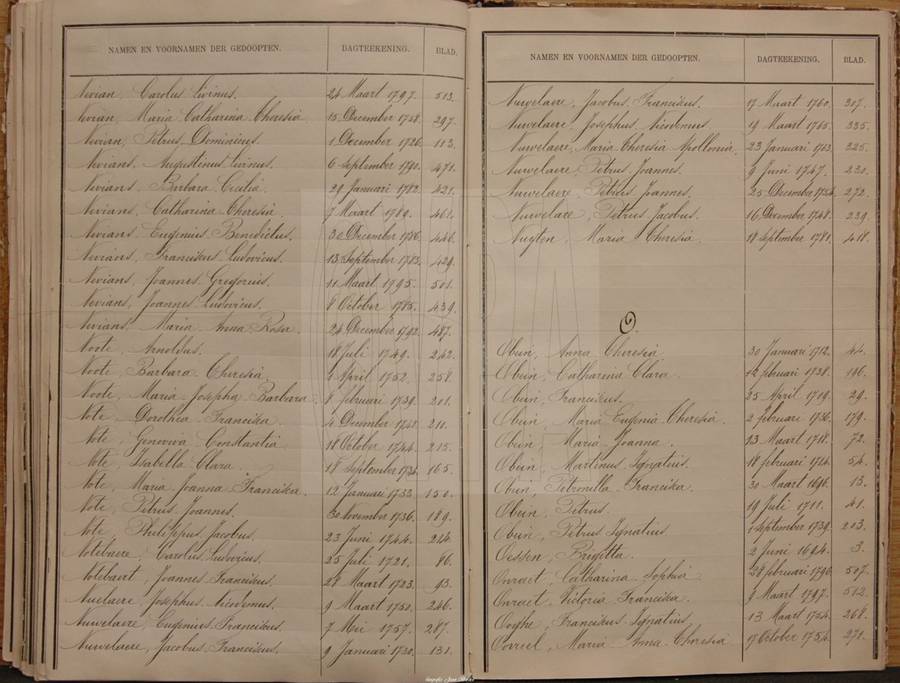 NAMEN EN VOORNAMEN DER GEDOOPTEN. DAGTEEKENING. BLAD.
Nivian, Carolus Livinus. 24 Maart 1797. 513.
Nivian, Maria Catharina Theresia 15 December 1758. 297.
Nivian, Petrus Dominicus. 1 December 1726. 113.
Nivians, Augustinus Livinus. 6 September 1790. 471.
Nivians, Barbara Cecilia. 29 Januari 1782. 421.
Nivians, Catharina Theresia. 7 Maart 1789. 461.
Nivians, Eugenius Benedictus. 30 December 1786. 446.
Nivians, Franciscus Ludovicus. 13 September 1783. 429.
Nivians, Joannes Gregorius. 11 Maart 1795. 501.
Nivians, Joannes Ludovicus. 8 October 1785. 439.
Nivians, Maria Anna Rosa 24 December 1792. 487.
Noote, Arnoldus. 18 Juli 1749. 242.
Noote, Barbara Theresia. 1 April 1752. 258.
Noote, Maria Josepha Barbara. 8 Februari 1739. 201.
Note, Dorothea Francisca. 4 December 210.
Note, Genoveva Constantia. 18 October 1744. 215.
Note, Isabella Clara. 18 September 1734. 165.
Note, Maria Joanna Francisca. 12 Januari 1733. 150.
Note, Petrus Joannes. 30 November 1736. 189.
Note, Philippus Jacobus. 23 Juni 1744. 224.
Notebaere, Carolus Ludovicus. 25 Juli 1721. 86.
Notebaert, Joannes Franciscus. 28 Maart 1723. 93.
Nuelaere, Josephus Nicodemus. 9 Maart 1750. 246.
Nuwelaere, Eugenius Franciscus. 7 Mei 1757. 287.
Nuwelaere, Jacobus Franciscus. 9 Januari 1730. 131.
NAMEN EN VOORNAMEN DER GEDOOPTEN. DAGTEEKENING. BLAD.
Nuwelaere, Jacobus Franciscus. 17 Maart 1760. 307.
Nuwelaere, Josephus Nicodemus. 19 Maart 1765. 335.
Nuwelaere, Maria Theresia Apollonia. 23 Januari 1763. 325.
Nuwelaere, Petrus Joannes. 9 Juni 1747. 220.
Nuwelaere, Petrus Joannes. 25 December 1754. 272.
Nuwelare, Petrus Jacobus. 16 December 1748. 239.
Nuyten, Maria Theresia. 18 September 1781. 418.
O.
Obin, Anna Theresia. 30 Januari 1712. 44.
Obin, Catharena Clara. 12 Februari 1728. 116.
Obin, Franciscus. 25 April 1719. 29.
Obin, Maria Eugenia Theresia. 2 Februari 1736. 179.
Obin, Maria Joanna. 13 Maart 1718. 72.
Obin, Martinus Ignatius. 18 Februari 1714. 54.
Obin, Petronilla Francisca. 30 Maart 1696. 13.
Obin, Petrus. 19 Juli 1711. 41.
Obin, Petrus Ignatius. 1 September 1739. 203.
Oessen, Brigitta. 2 Juni 1694. 3.
Onraet, Catharina Sophia 28 Februari 1796. 507.
Onraet, Victoria Francisca. 9 Maart 1797. 512.
Ooghe, Franciscus Ignatius. 13 Maart 1754. 268.
Oovrel, Maria Anna Theresia 17 October 1754. 271.